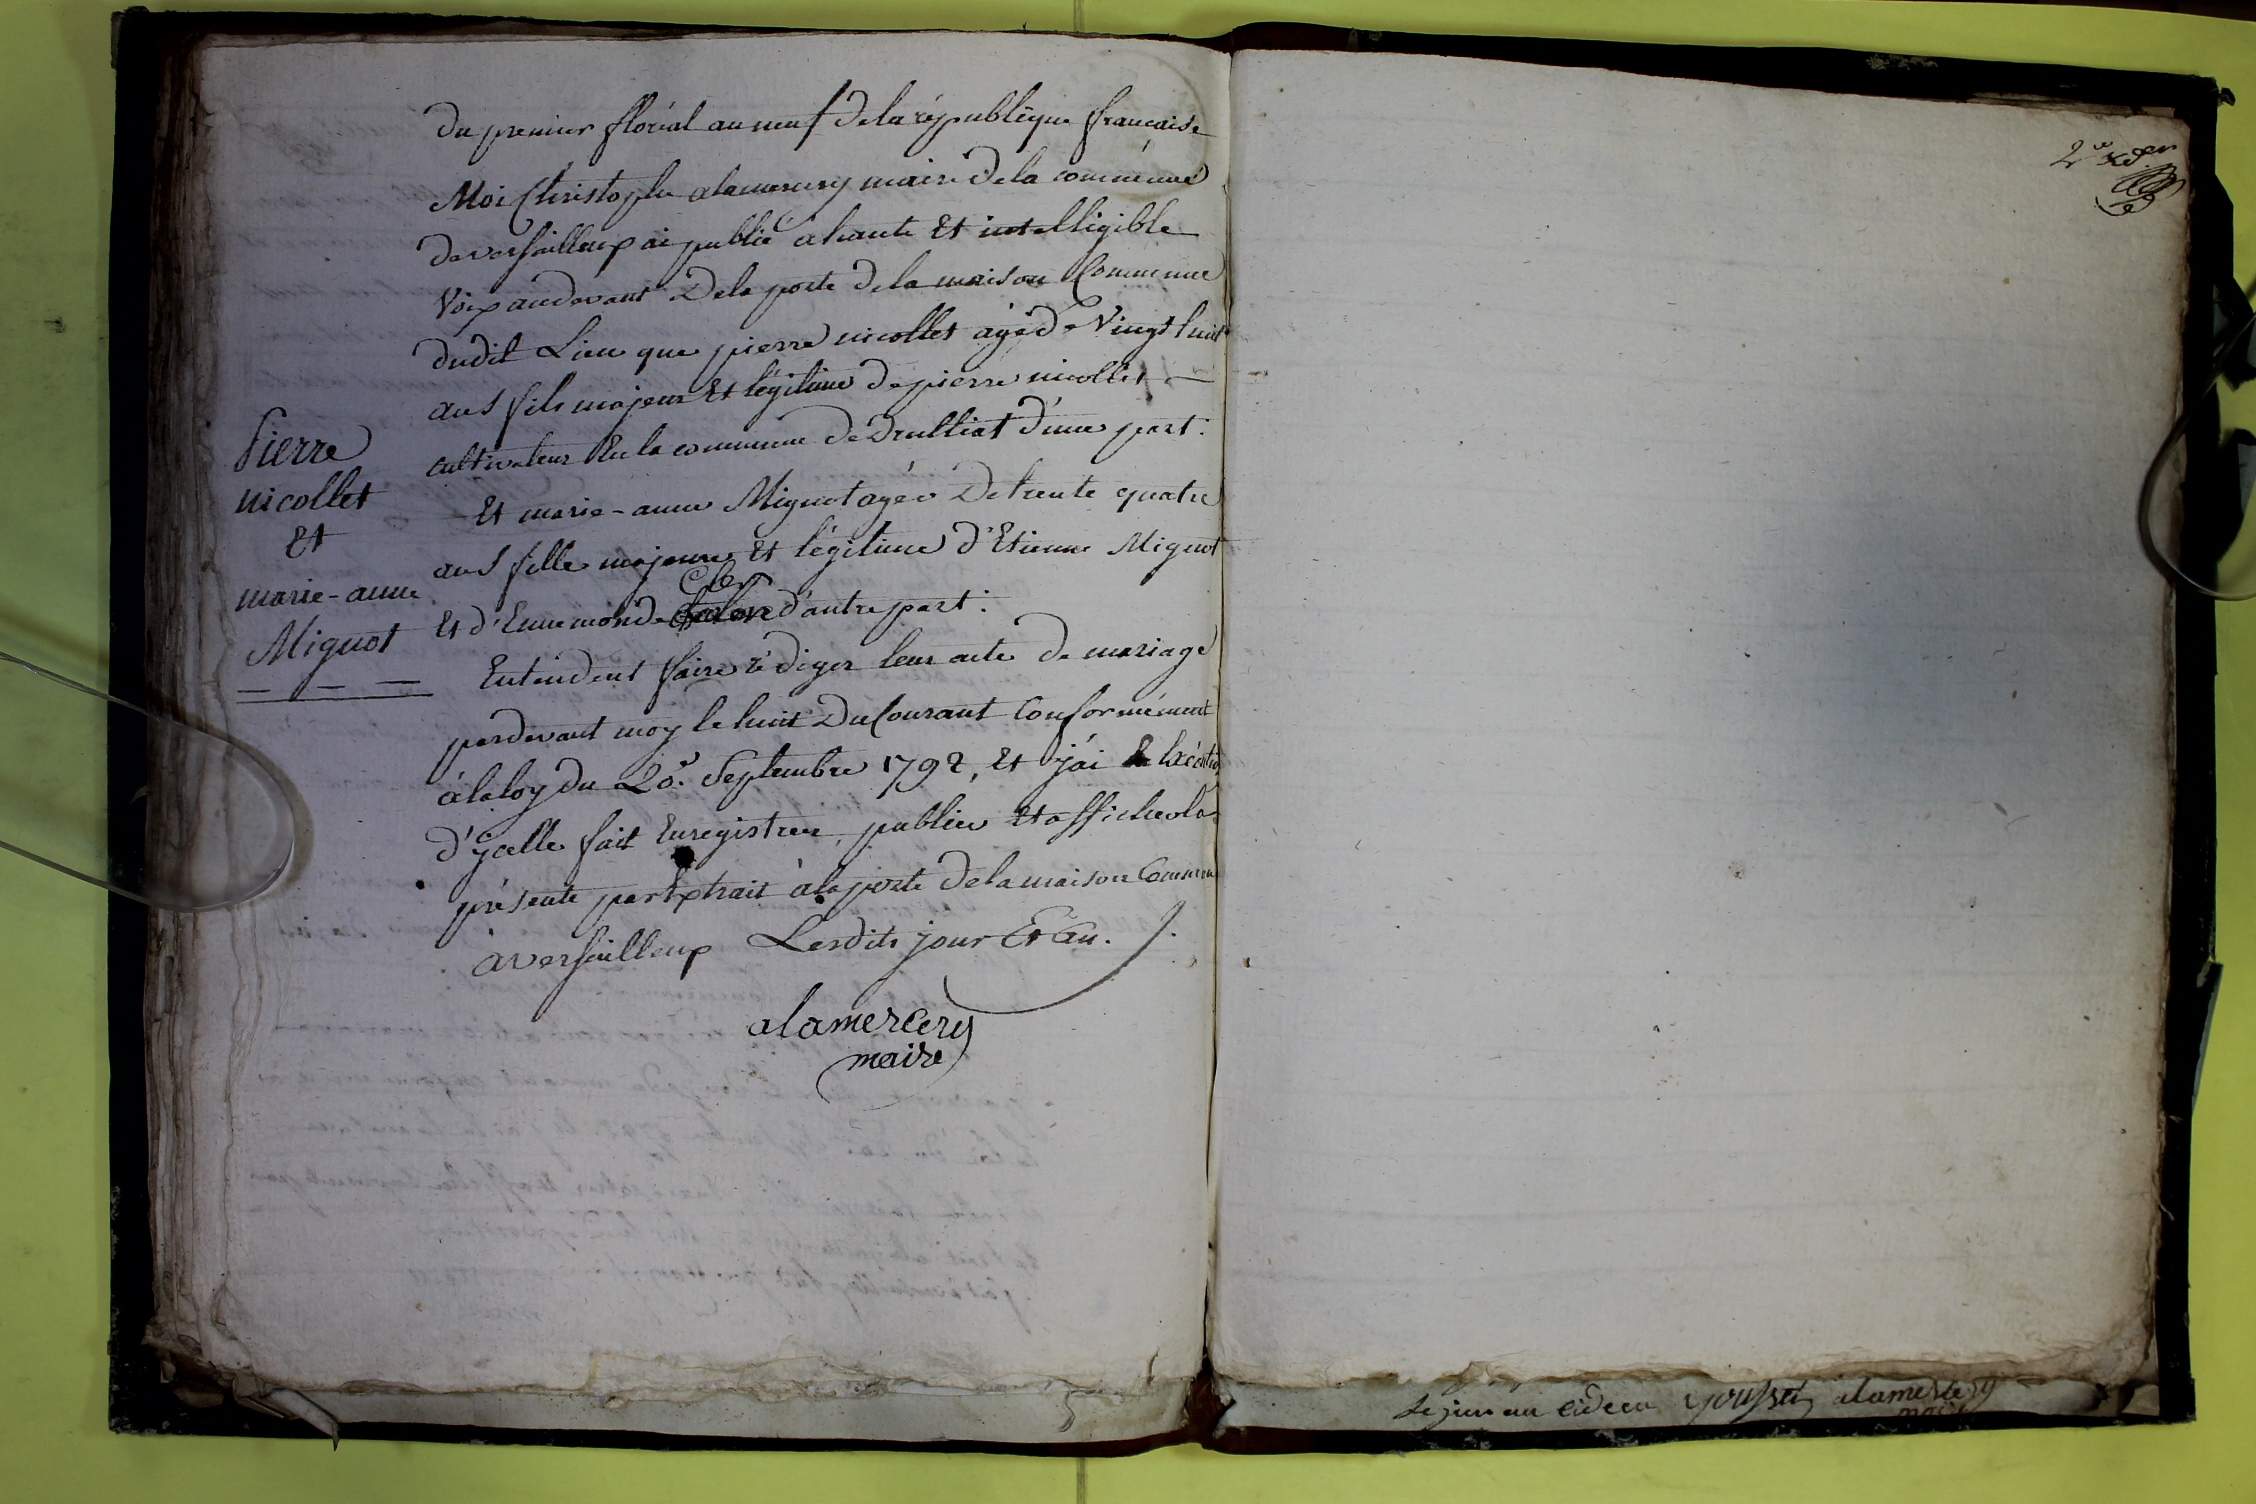 Du premier floréal an neuf de la république française
Moi Christophe alamercery maire de la commune
de versailleux ai publié a haute Et intelligible
Voix audevant De la porte de la maison Commune
dudit Lieu que pierre nicollet agé de Vingt huit
ans fils majeur Et légitime de pierre nicollet
cultivateur En la commune de Druilliat d'une part.
Et marie-anne Mignot agée De trente quatre
ans fille majeure Et légitime d'Etienne Mignot
Et d'Ennemonde d'autre part.
Entendent faire rédiger leur acte de mariage
pardevant moy le huit Du Courant Conformément
à la loy du 20e. Septembre 1792, Et j'ai
d'ycelle fait Enregistrer, publier Et afficher la
présente par Extrait à la porte de la maison Commune
à versailleux Lesdits jour Et an.
alamercery
maire
Pierre
nicollet
Et
marie-anne
Mignot
2e
alamercery
maire